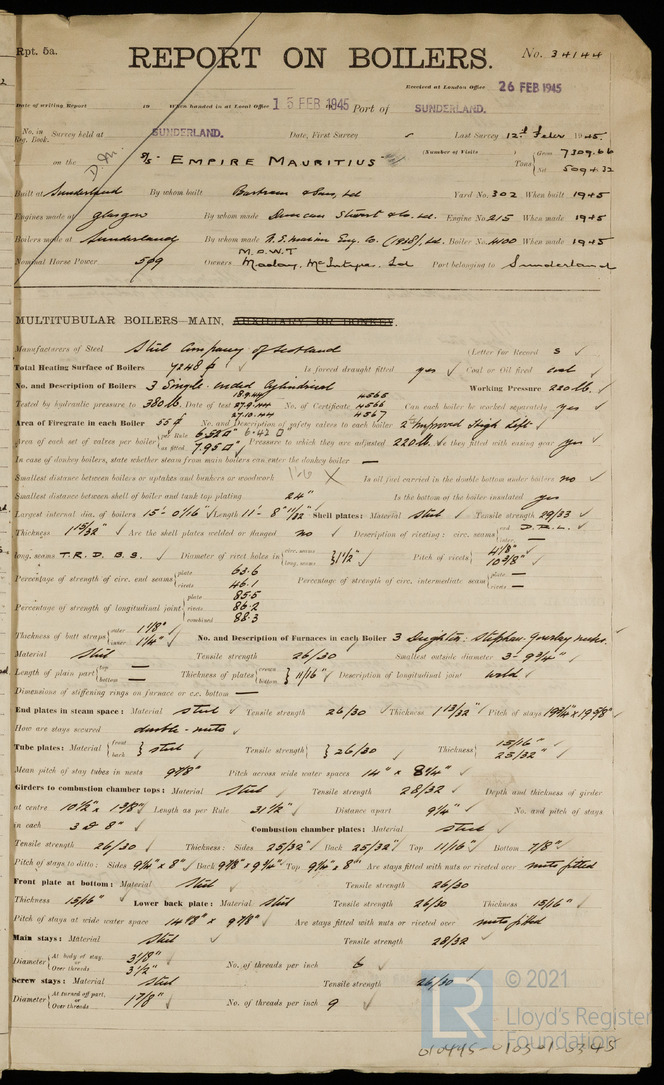 Rpt. 5a.
REPORT ON BOILERS. No. 34144
Received at London Office 26 FEB 1945
Date of writing Report 19 When handed in at Local Office 15 FEB 1945 Port of SUNDERLAND.
No. in Reg. Book. Survey held at SUNDERLAND. Date, First Survey Last Survey 12th Feb 1945
on the S/S. EMPIRE MAURITIUS (Number of Visits ) Tons Gross 7309.66 Net 5094.32
Built at Sunderland By whom built Bartram & Sons, Ltd Yard No. 302 When built 1945
Engines made at Glasgow By whom made Duncan Stewart & Co. Ltd. Engine No. 215 When made 1945
Boilers made at Sunderland By whom made N.E. Marine Eng. Co. (1938) Ltd. Boiler No. 4100 When made 1945
Nominal Horse Power 509 Owners M.O.W.T Maclay, McIntyre, Ltd Port belonging to Sunderland
MULTITUBULAR BOILERS MAIN, AUXILIARY OR DONKEY.
Manufacturers of Steel Steel Company of Scotland (Letter for Record S )
Total Heating Surface of Boilers 7248 Is forced draught fitted yes Coal or Oil fired coal
No. and Description of Boilers 3 Single-ended Cylindrical Working Pressure 220 lb.
Tested by hydraulic pressure to 380 lb. Date of test 18.9.44 27.9.44 27.10.44 No. of Certificate 4565 4566 4567 Can each boiler be worked separately yes
Area of Firegrate in each Boiler 55 No. and Description of safety valves to each boiler 2 Improved High Lift
Area of each set of valves per boiler per Rule 6.52 6.42 as fitted 7.95 Pressure to which they are adjusted 220 lb. Are they fitted with easing gear yes
In case of donkey boilers, state whether steam from main boilers can enter the donkey boiler —
Smallest distance between boilers or uptakes and bunkers or woodwork 1'-6 Is oil fuel carried in the double bottom under boilers no
Smallest distance between shell of boiler and tank top plating 24" Is the bottom of the boiler insulated yes
Largest internal dia. of boilers 15'- 0 1/16" Length 11'- 8 11/32" Shell plates: Material steel Tensile strength 29/33
Thickness 1 15/32" Are the shell plates welded or flanged no Description of riveting: circ. seams end D.R.L. inter. —
long. seams T.R.D.B.S. Diameter of rivet holes in circ. seams long. seams 1 1/2" Pitch of rivets 4 1/8" 10 3/8"
Percentage of strength of circ. end seams plate 63.6 rivets 46.1 Percentage of strength of circ. intermediate seam plate — rivets —
Percentage of strength of longitudinal joint plate 85.5 rivets 86.2 combined 88.3
Thickness of butt straps outer 1 1/8" inner 1 1/4" No. and Description of Furnaces in each Boiler 3 Deighton: Stephen-Gourlay necks.
Material steel Tensile strength 26/30 Smallest outside diameter 3'- 9 3/4"
Length of plain part top — bottom — Thickness of plates crown bottom 11/16" Description of longitudinal joint weld
Dimensions of stiffening rings on furnace or c.c. bottom —
End plates in steam space: Material steel Tensile strength 26/30 Thickness 1 13/32" Pitch of stays 19 1/4" x 19 5/8"
How are stays secured double-nuts
Tube plates: Material front back steel Tensile strength 26/30 Thickness 15/16" 25/32"
Mean pitch of stay tubes in nests 9 7/8" Pitch across wide water spaces 14" x 8 1/4"
Girders to combustion chamber tops: Material steel Tensile strength 28/32 Depth and thickness of girder
at centre 10 1/2" x 1 3/8" Length as per Rule 31 1/2" Distance apart 9 1/4" No. and pitch of stays
in each 3 @ 8" Combustion chamber plates: Material steel
Tensile strength 26/30 Thickness: Sides 25/32" Back 25/32" Top 11/16" Bottom 7/8"
Pitch of stays to ditto: Sides 9 1/4" x 8" Back 9 7/8" x 9 1/4" Top 9 1/4" x 8" Are stays fitted with nuts or riveted over nuts fitted
Front plate at bottom: Material steel Tensile strength 26/30
Thickness 15/16" Lower back plate: Material steel Tensile strength 26/30 Thickness 15/16"
Pitch of stays at wide water space 14 1/8" x 9 7/8" Are stays fitted with nuts or riveted over nuts fitted
Main stays: Material steel Tensile strength 28/32
Diameter At body of stay, or Over threads 3 1/8" 3 1/2" No. of threads per inch 6
Screw stays: Material steel Tensile strength 26/30
Diameter At turned off part, or Over threads 1 7/8" No. of threads per inch 9
LR © 2021
Lloyd's Register
Foundation
010445-0105-01-0345